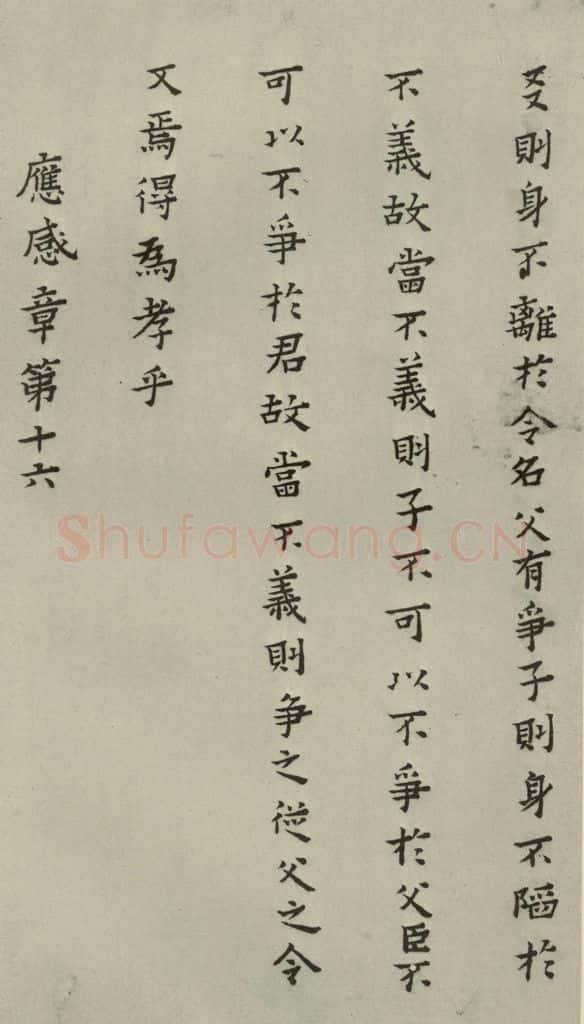 友則身不離於令名父有爭子則身不陷於
不義故當不義則子不可以不爭於父臣不
可以不爭於君故當不義則争之從父之令
又焉得爲孝乎
應感章第十六
Shufawang.CN